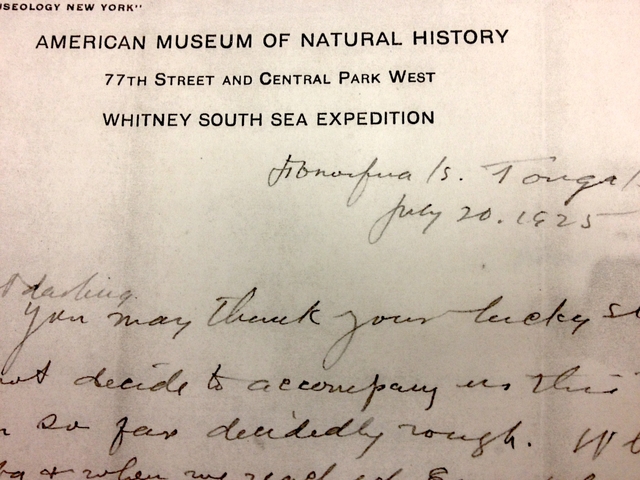 USEOLOGY NEW YORK"
AMERICAN MUSEUM OF NATURAL HISTORY
77TH STREET AND CENTRAL PARK WEST
WHITNEY SOUTH SEA EXPEDITION
Is. Tonga
July 20. 1925
darling
You may thank your lucky st
not decide to accompany us this
so far decidedly rough.
& when we reached